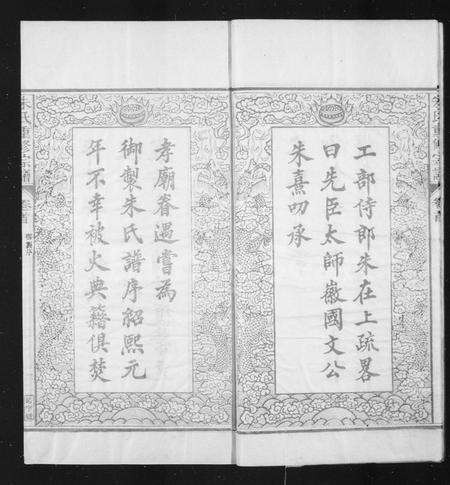 工部侍郎朱在上疏畧
曰先臣太師徽國文公
朱熹叨承
孝廟眷遇嘗為
御製朱氏譜序紹熙元
年不幸被火典籍俱焚
朱氏重修宗譜
卷首